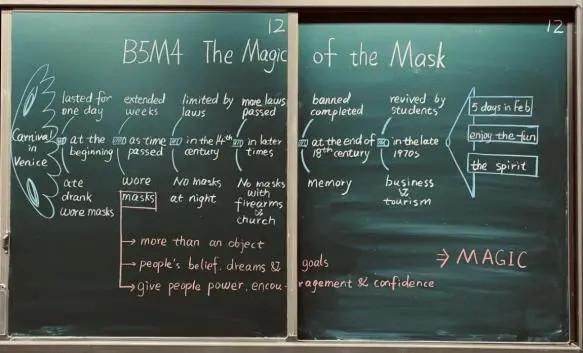 12
12
B5M4 The Magic of the Mask
lasted for one day
extended weeks
limited by laws
more laws passed
banned completed
revived by students
5 days in Feb
Carnival in Venice
at the beginning
as time passed
in the 14th century
in later times
at the end of 18th century
in the late 1970s
enjoy the fun
the spirit
ate
drank
wore masks
wore
masks
No masks
at night
No masks
with
firearms
&
church
memory
business
&
tourism
→ more than an object
→ people's belief, dreams & goals
→ give people power, encouragement & confidence
⇒ MAGIC